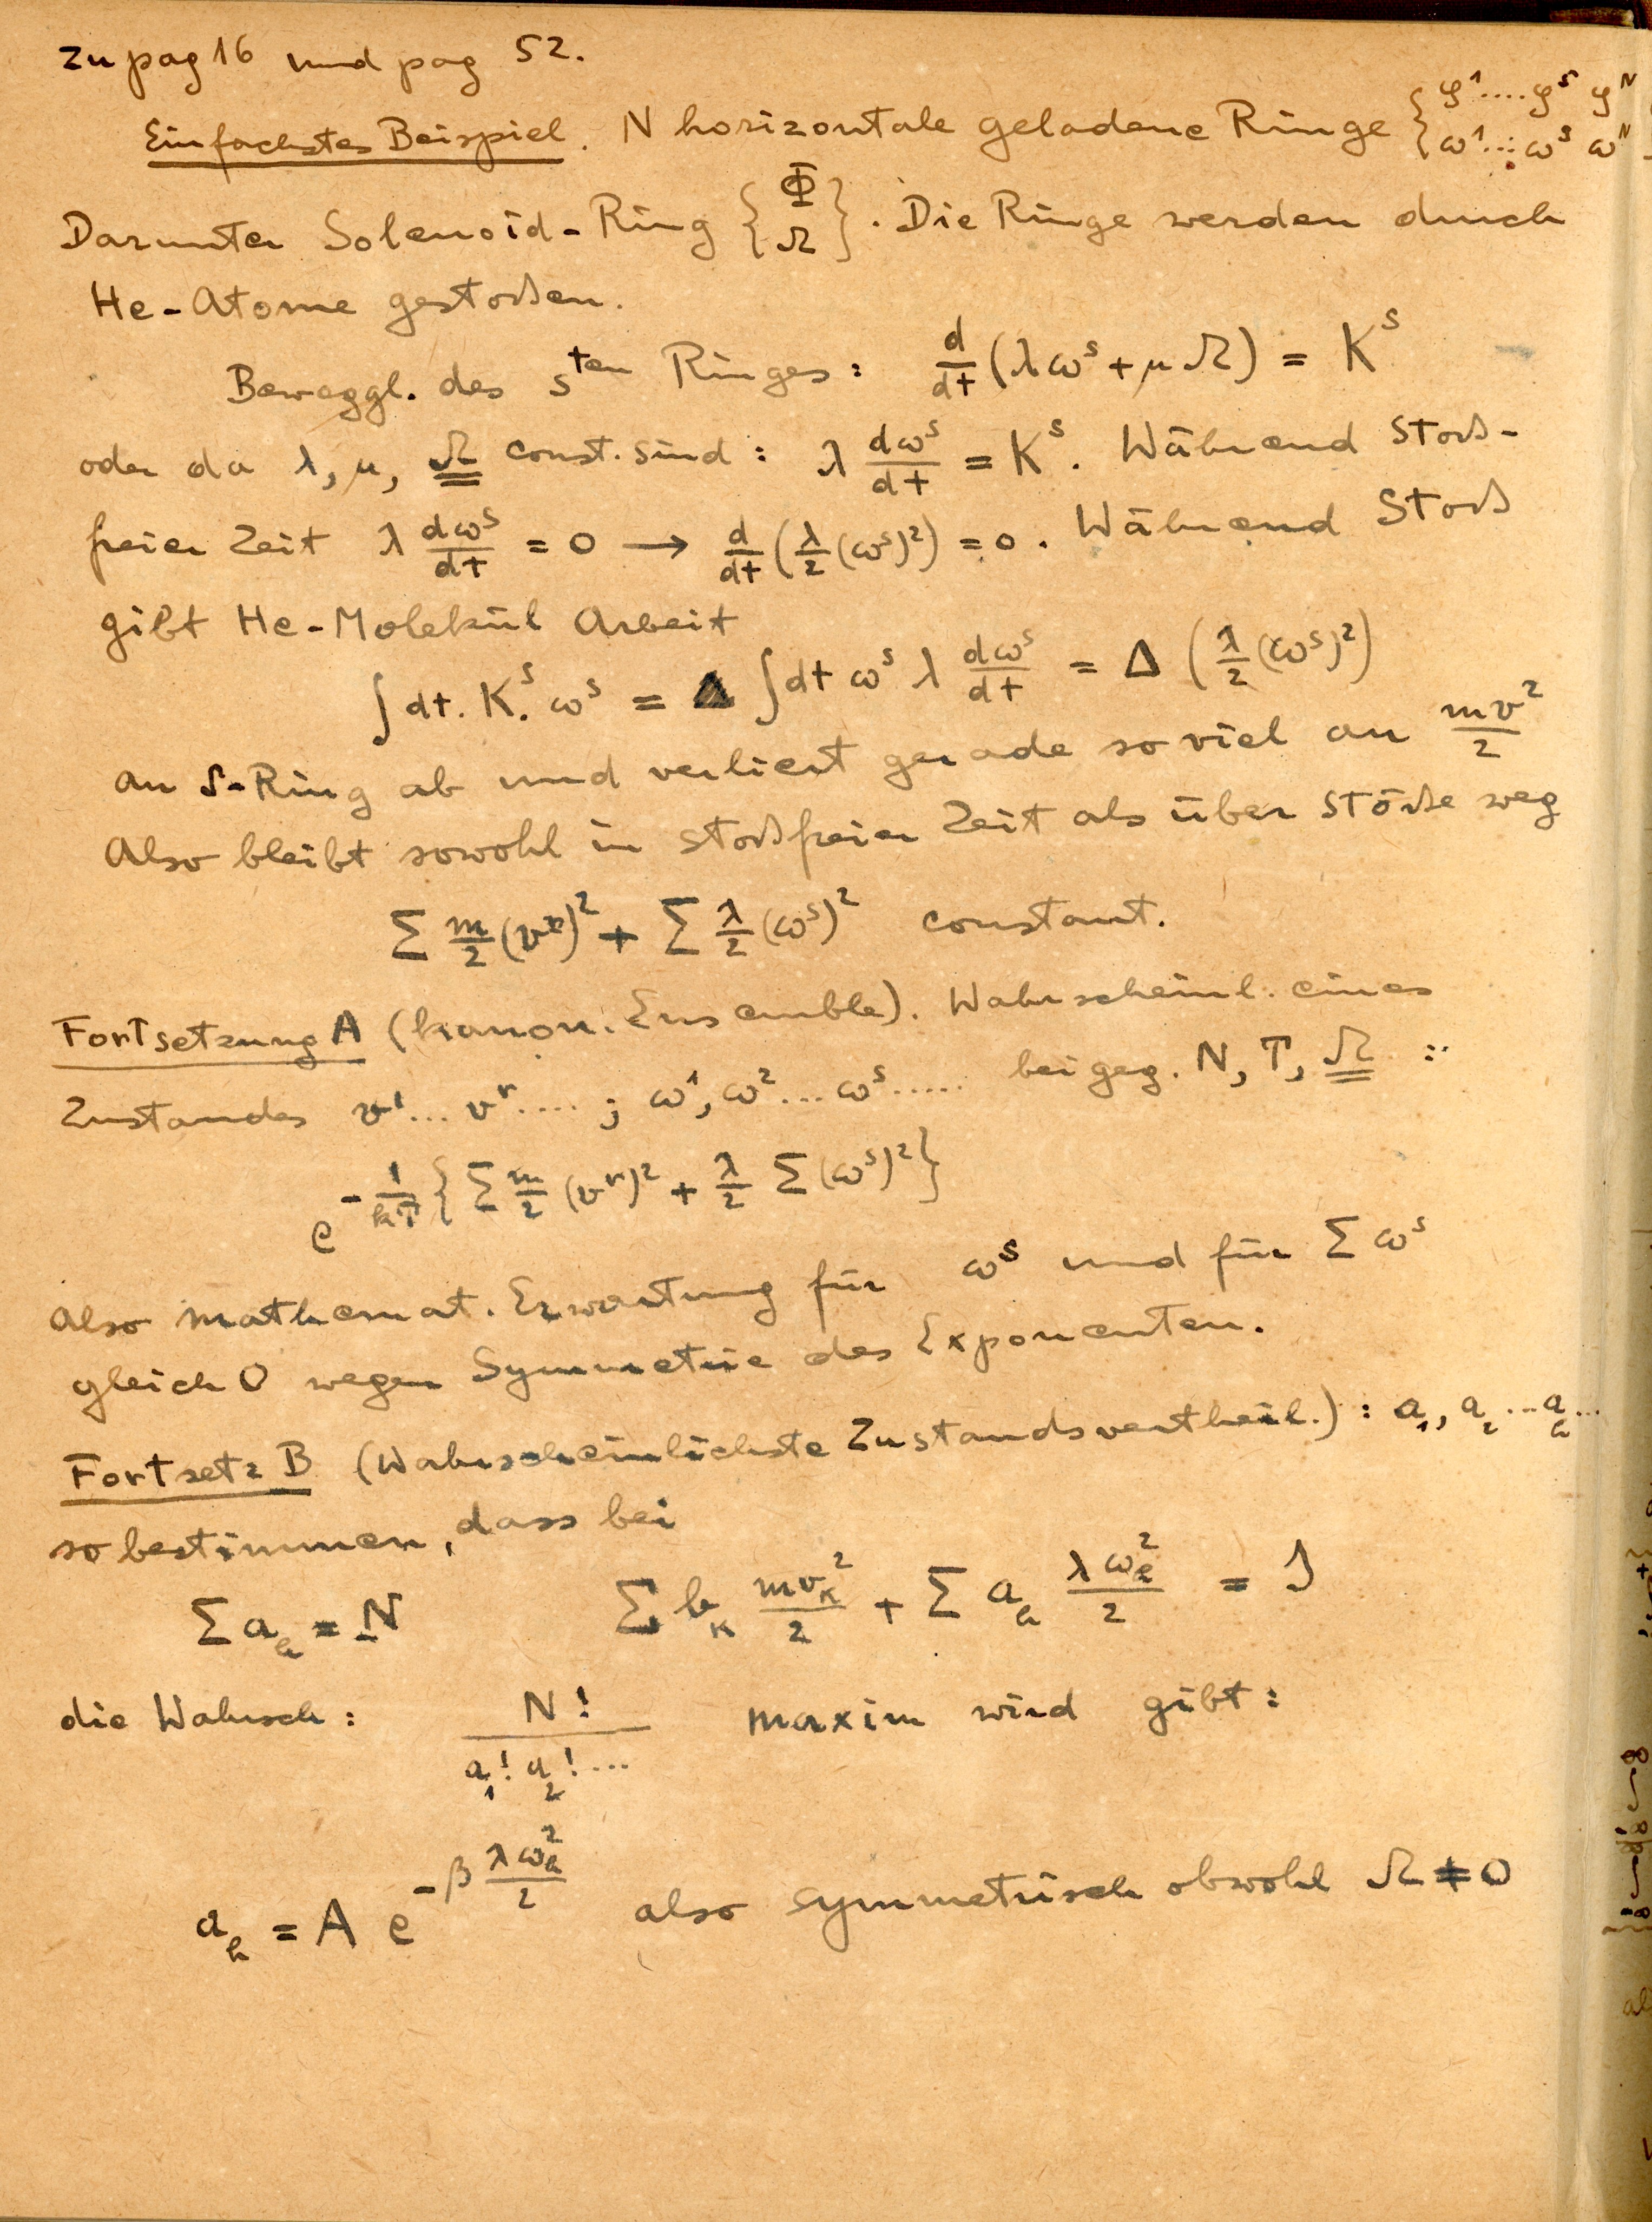 Zu pag 16 und pag 52.
Einfachstes Beispiel. N horizontale geladene Ringe { φ¹....φˢ φᴺ / ω¹...ωˢ ωᴺ
Darunter Solenoid-Ring { Φ / Ω }. Die Ringe werden durch
He-Atome gestoßen.
Beweggl. des sten Ringes: d/dt (λωˢ + μΩ) = Kˢ
oder da λ, μ, Ω const. sind: λ dωˢ/dt = Kˢ. Während Stoß-
freier Zeit λ dωˢ/dt = 0 → d/dt (λ/2 (ωˢ)²) = 0. Während Stoß
gibt He-Molekül Arbeit
∫ dt. Kˢ. ωˢ = ∫ dt ωˢ λ dωˢ/dt = Δ (λ/2 (ωˢ)²)
an s-Ring ab und verliert gerade so viel an mv²/2
Also bleibt sowohl in stoßfreier Zeit als über Stöße weg
Σ m/2 (vʳ)² + Σ λ/2 (ωˢ)² constant.
Fortsetzung A (kanon. Ensemble). Wahrscheinl. eines
Zustandes v¹... vʳ.... ; ω¹, ω²...ωˢ..... bei geg. N, T, Ω :
e^{-1/kT { Σ m/2 (vʳ)² + λ/2 Σ (ωˢ)² }}
Also mathemat. Erwartung für ωˢ und für Σ ωˢ
gleich 0 wegen Symmetrie des Exponenten.
Fortsetz B (Wahrscheinlichste Zustandsvertheil.) : a₁, a₂ ... aₕ...
so bestimmen, dass bei
Σ aₕ = N Σ bₖ mvₖ²/2 + Σ aₕ λωₕ²/2 = J
die Wahrsch: N! / a₁! a₂!... maxim wird gibt:
aₕ = A e^{-β λωₕ²/2} also symmetrisch obwohl Ω ≠ 0